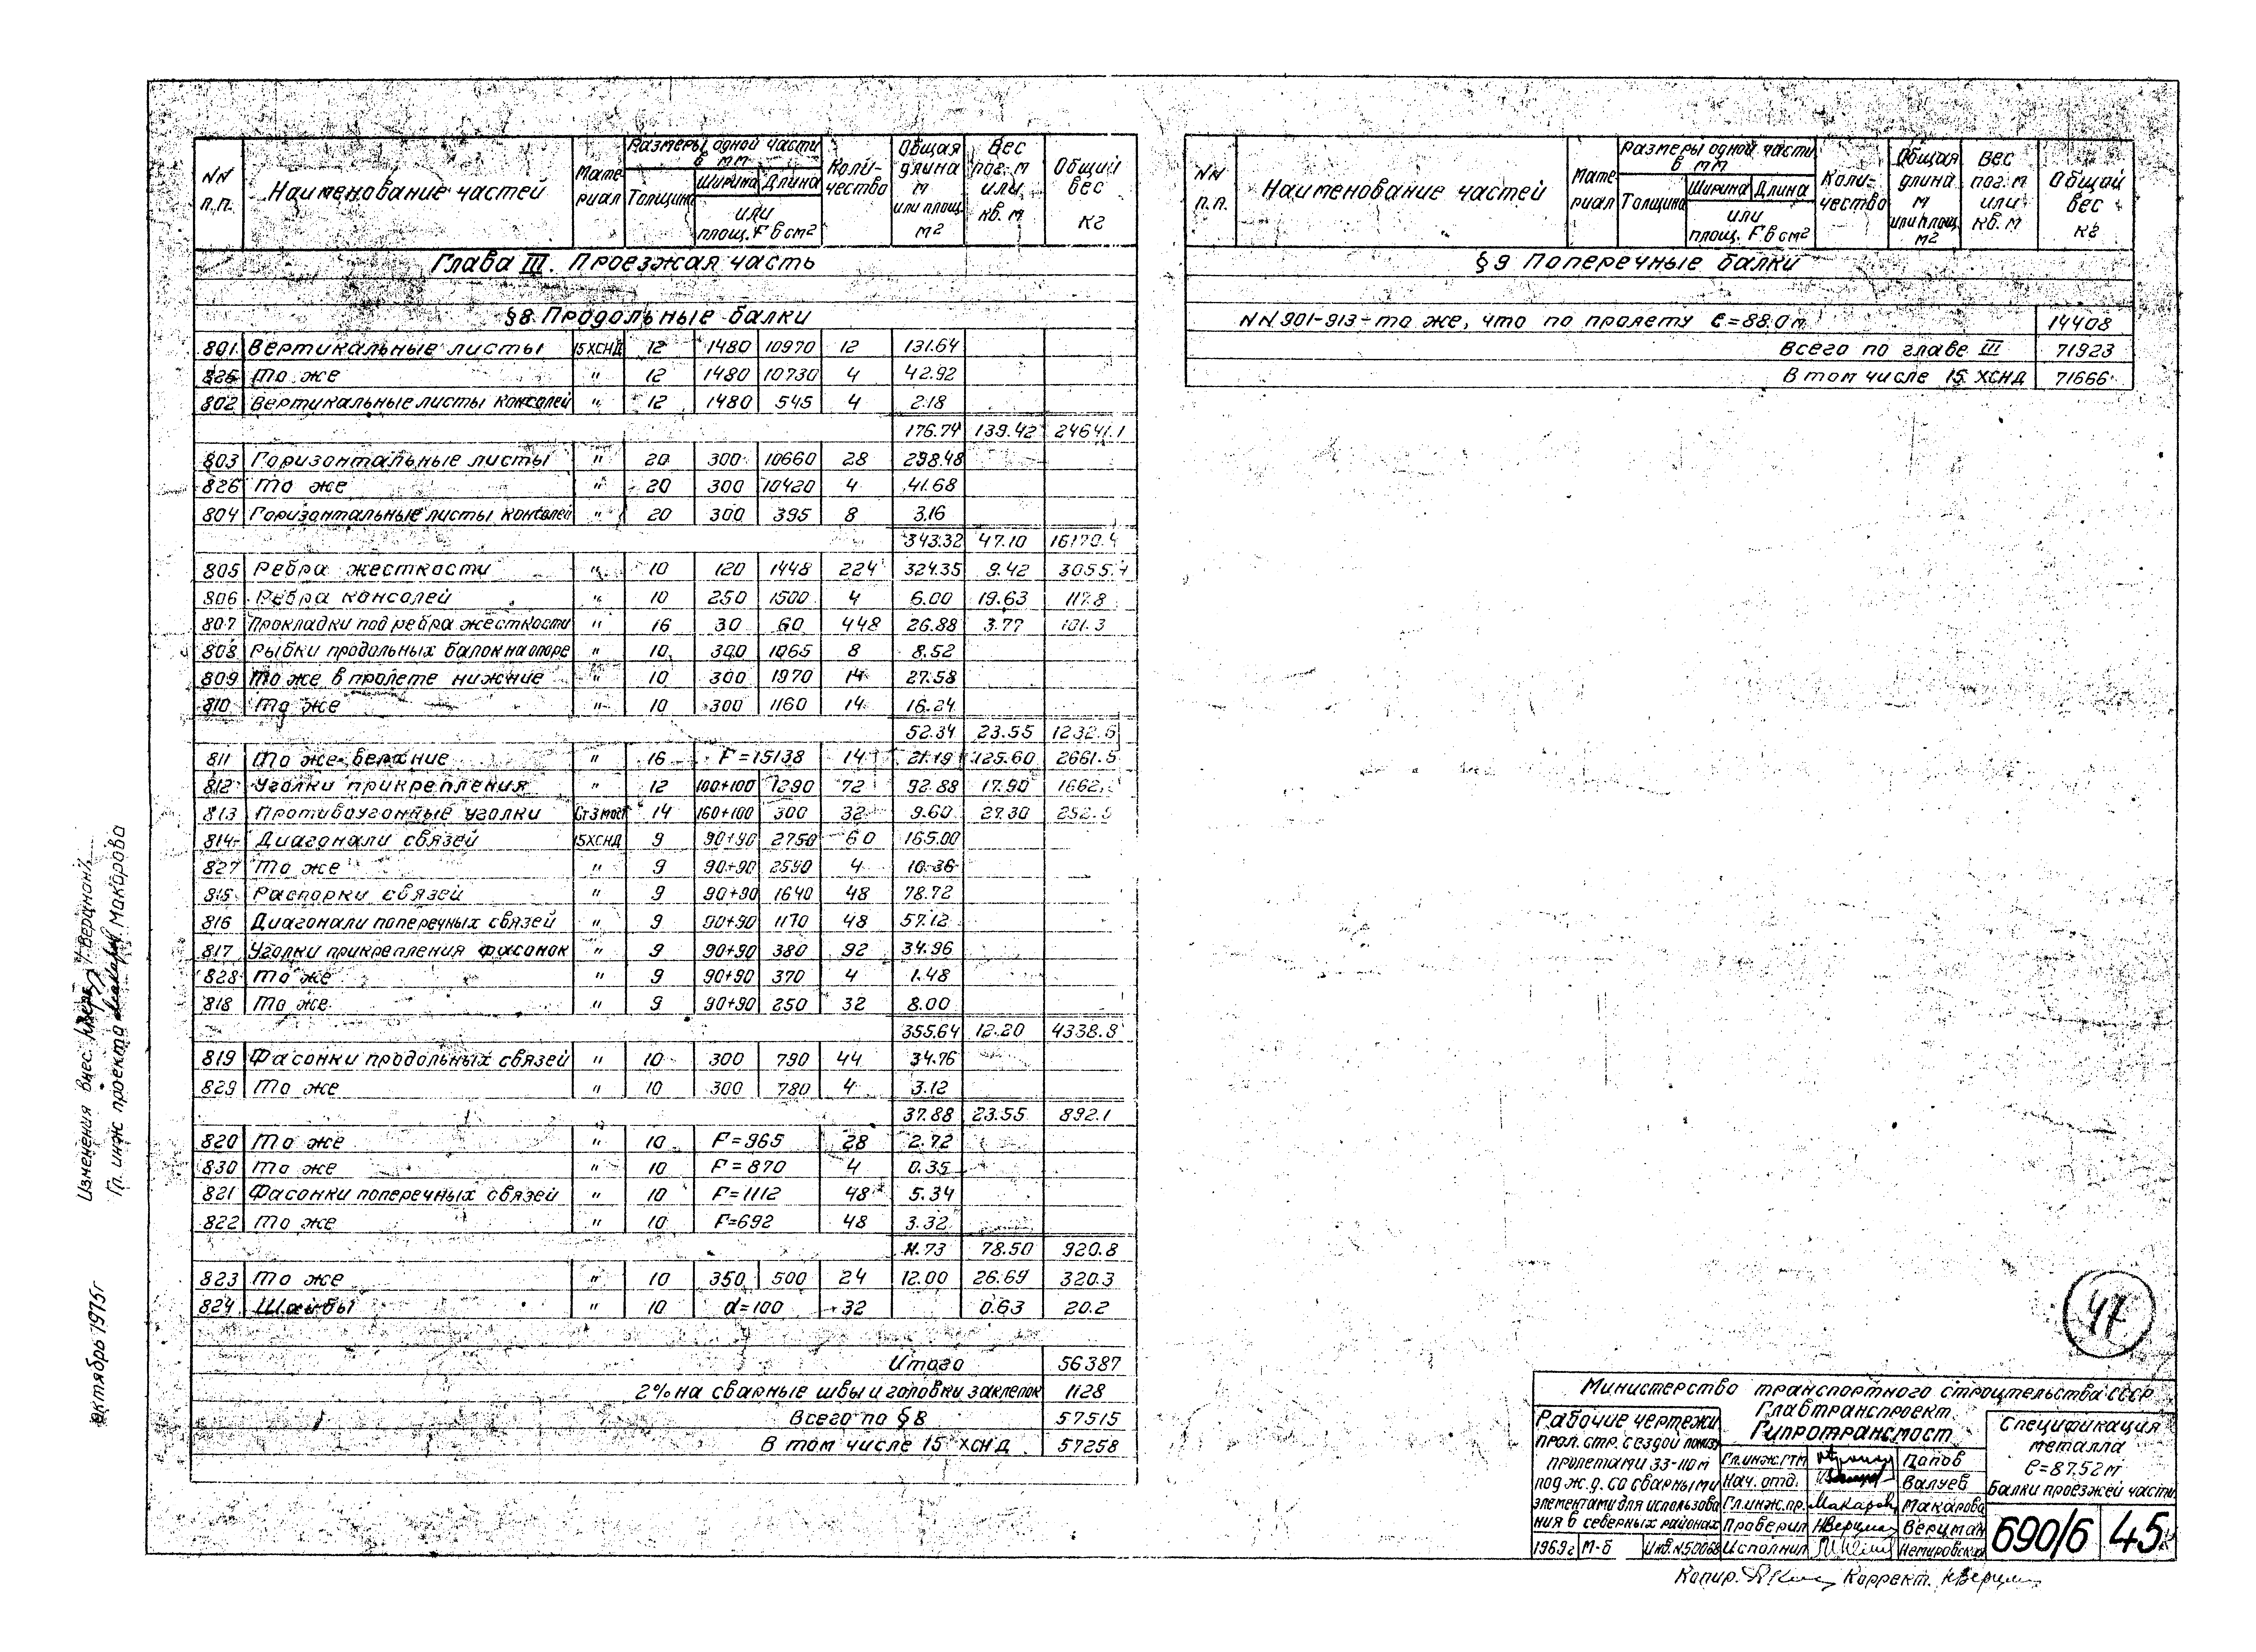 NN п.п. Наименование частей Мате-риал Размеры одной части в мм Толщина Ширина Длина или площ. F в см2 Коли-чество Общая длина м или площ. м2 Вес пог. м или кв. м Общий вес кг
Глава III. Проезжая часть
§8 Продольные балки
801 Вертикальные листы 15ХСНД 12 1480 10970 12 131.64
825 То же " 12 1480 10730 4 42.92
802 Вертикальные листы консолей " 12 1480 545 4 2.18
176.74 139.42 24641.1
803 Горизонтальные листы " 20 300 10660 28 298.48
826 То же " 20 300 10420 4 41.68
804 Горизонтальные листы консолей " 20 300 395 8 3.16
343.32 47.10 16170.4
805 Ребра жесткости " 10 120 1448 224 324.35 9.42 3055.4
806 Ребра консолей " 10 250 1500 4 6.00 19.63 117.8
807 Прокладки под ребра жесткости " 16 30 60 448 26.88 3.77 101.3
808 Рыбки продольных балок на опоре " 10 300 1065 8 8.52
809 То же в пролете нижние " 10 300 1970 14 27.58
810 То же " 10 300 1160 14 16.24
52.34 23.55 1232.6
811 То же верхние " 16 F=15138 14 21.19 125.60 2661.5
812 Уголки прикрепления " 12 100+100 1290 72 92.88 17.90 1662.
813 Противоугонные уголки Ст3 мост 14 160+100 300 32 9.60 27.30 252.
814 Диагонали связей 15ХСНД 9 90+90 2750 60 165.00
827 То же " 9 90+90 2590 4 10.36
815 Распорки связей " 9 90+90 1640 48 78.72
816 Диагонали поперечных связей " 9 90+90 1170 48 57.12
817 Уголки прикрепления фасонок " 9 90+90 380 92 34.96
828 То же " 9 90+90 370 4 1.48
818 То же " 9 90+90 250 32 8.00
355.64 12.20 4338.8
819 Фасонки продольных связей " 10 300 790 44 34.76
829 То же " 10 300 780 4 3.12
37.88 23.55 892.1
820 То же " 10 F=965 28 2.72
830 То же " 10 F=870 4 0.35
821 Фасонки поперечных связей " 10 F=1112 48 5.34
822 То же " 10 F=692 48 3.32
11.73 78.50 920.8
823 То же " 10 350 500 24 12.00 26.69 320.3
824 Шайбы " 10 d=100 32 0.63 20.2
Итого 56387
2% на сварные швы и головки заклепок 1128
Всего по §8 57515
В том числе 15 ХСНД 57258
NN п.п. Наименование частей Мате-риал Размеры одной части в мм Толщина Ширина Длина или площ. F в см2 Коли-чество Общая длина м или площ. м2 Вес пог. м или кв. м Общий вес кг
§9 Поперечные балки
NN 901-913-то же, что по пролету ℓ=88.0 м 14408
Всего по главе III 71923
В том числе 15 ХСНД 71666
47
Министерство транспортного строительства СССР
Главтранспроект
Гипротрансмост
Рабочие чертежи
прол. стр. с ездой понизу
пролетами 33-110 м
под ж.д. со сварными
элементами для использова
ния в северных районах
1969г М-б Инв.N50068
Гл.инж.ГТМ Попов
Нач. отд. Валуев
Гл.инж.пр. Макарова
Проверил Верцман
Исполнил Немировская
Спецификация
металла
ℓ=87.52 м
Балки проезжей части
690/6 45
Копир. Коррект. НВерцман
Изменения внес. Верцман
Гл. инж проекта Макарова
октябрь 1975г